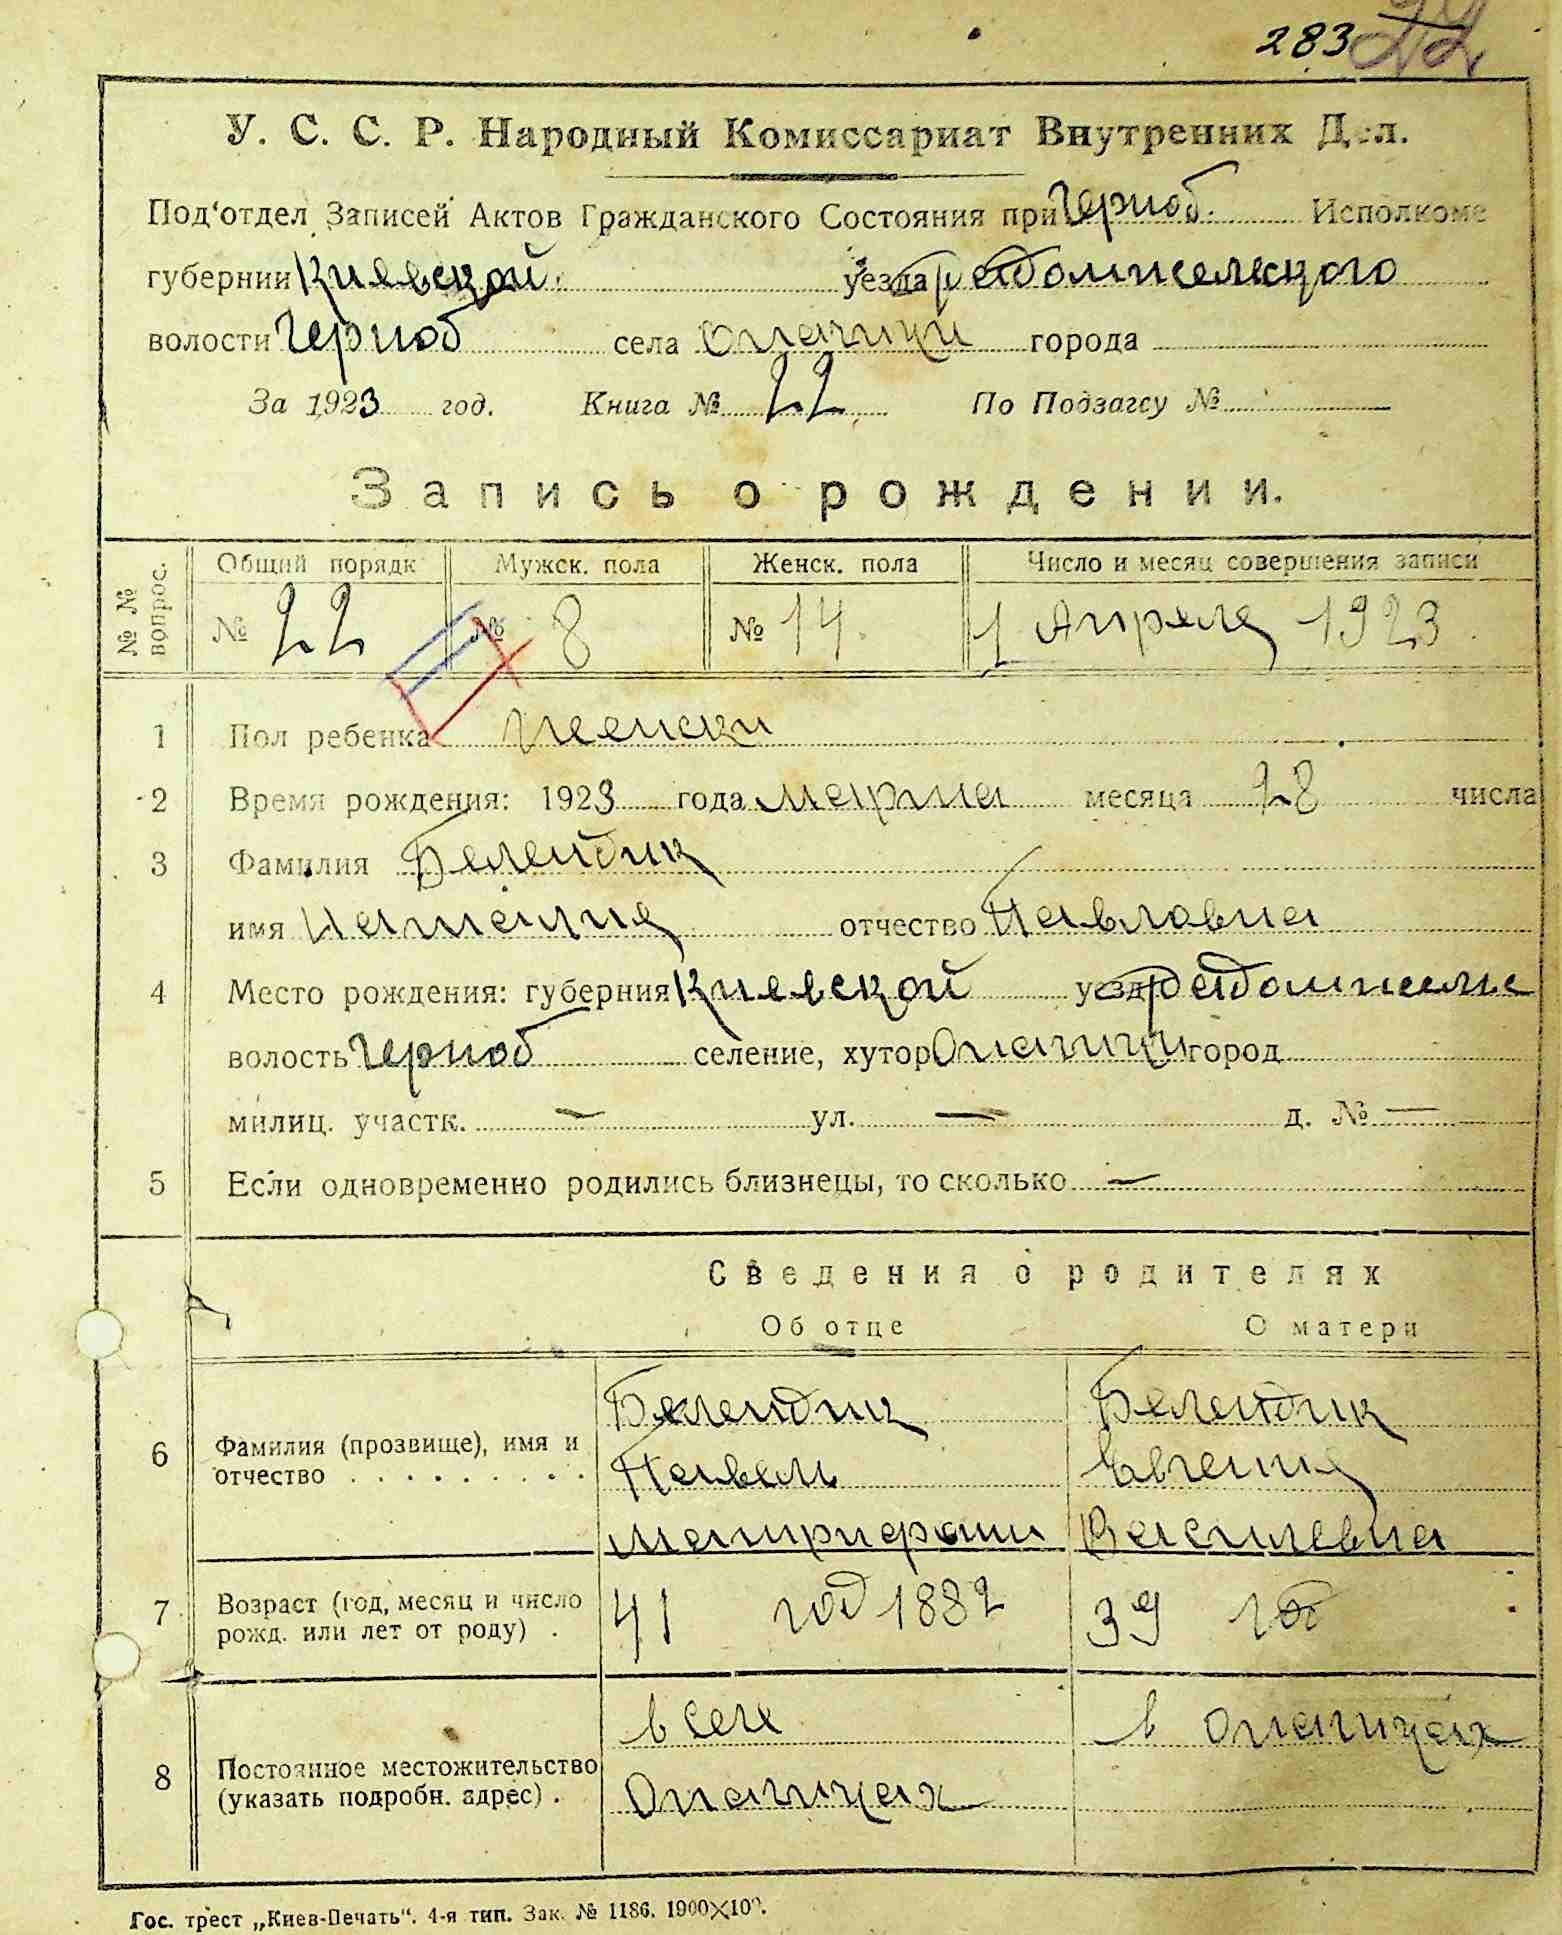 283
У. С. С. Р. Народный Комиссариат Внутренних Дел.
Под'отдел Записей Актов Гражданского Состояния при Черноб. Исполкоме
губернии Киевской уезда Радомисльского
волости Черноб села Опачичи города
За 1923 год. Книга № 22 По Подзагсу №
Запись о рождении.
№ № вопрос.
Общий порядк Мужск. пола Женск. пола Число и месяц совершения записи
№ 22 № 8 № 14. 1 Апреля 1923.
1 Пол ребенка женски
2 Время рождения: 1923 года марта месяца 28 числа
3 Фамилия Белендик
имя Наталия отчество Павловна
4 Место рождения: губерния Киевской уезд
волость Черноб селение, хутор Опачичи город
милиц. участк. — ул. — д. № —
5 Если одновременно родились близнецы, то сколько —
Сведения о родителях
Об отце О матери
6 Фамилия (прозвище), имя и отчество
Белендик Белендик
Павель Евгения
Василевна
7 Возраст (год, месяц и число рожд. или лет от роду) .
41 год 1882 39 год
8 Постоянное местожительство (указать подробн. адрес) .
в селе в Опачичах
Опачичах
Гос. трест „Киев-Печать“. 4-я тип. Зак. № 1186. 1900×100.